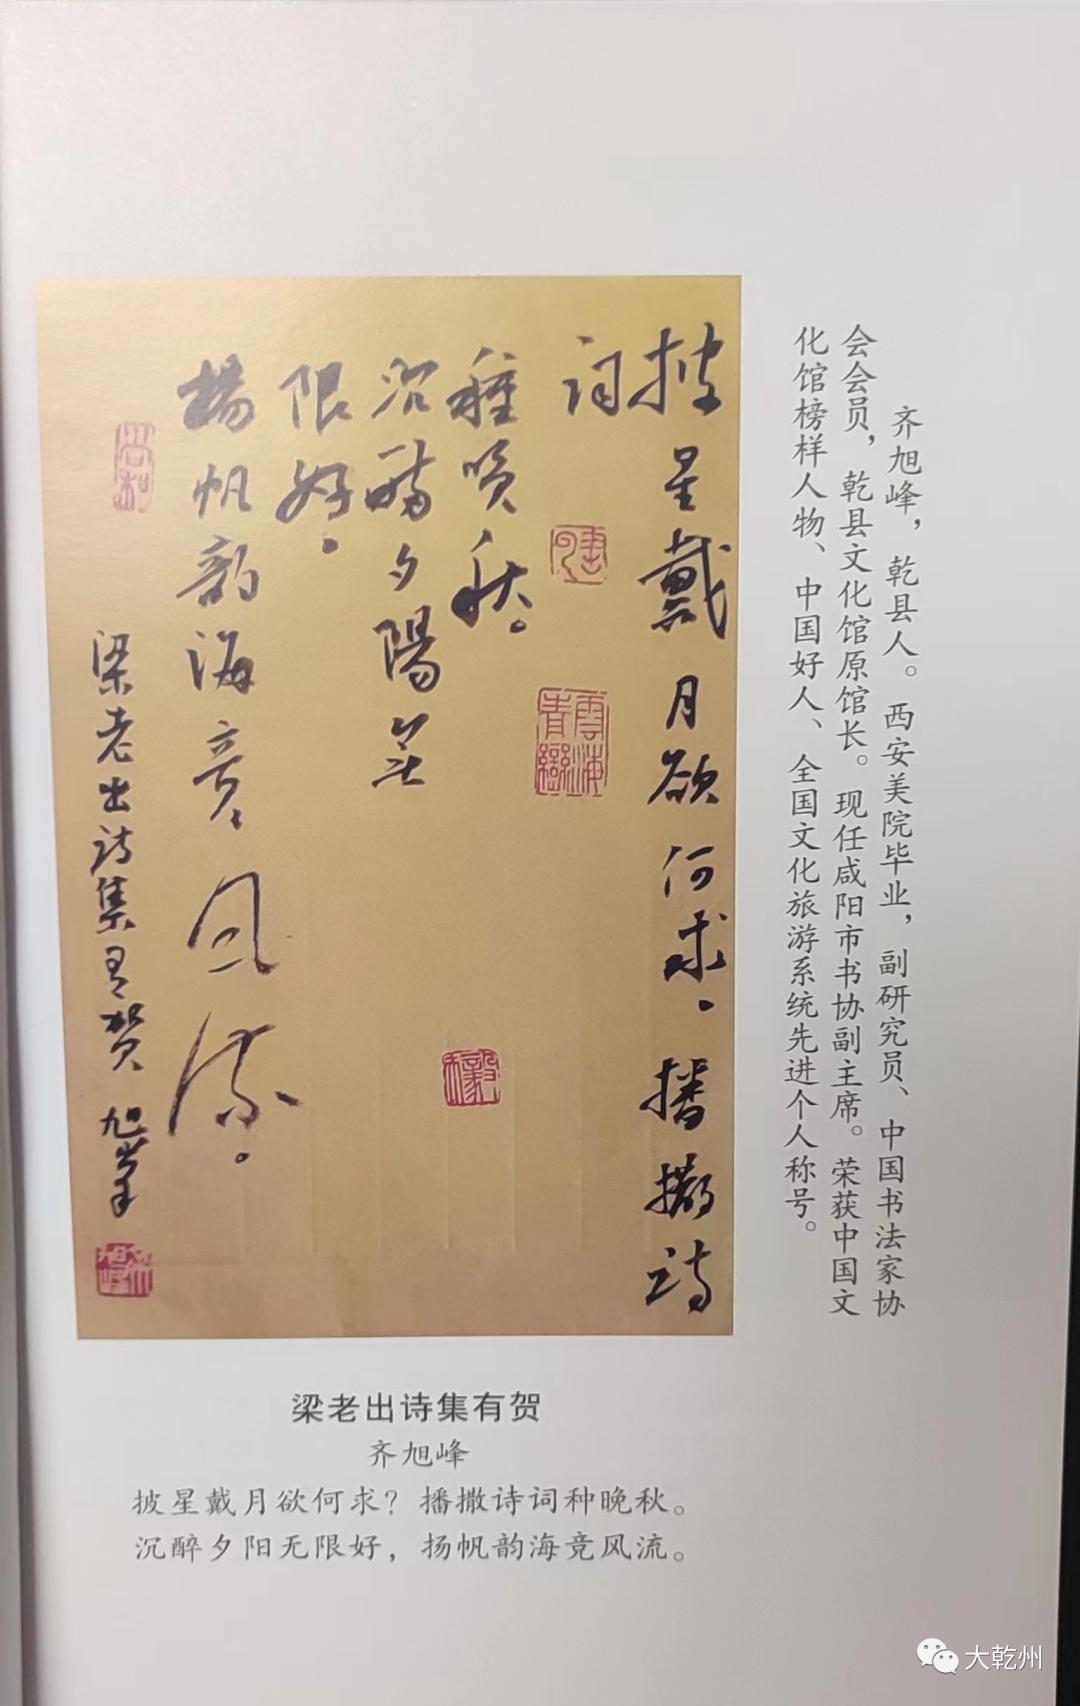 齐旭峰，乾县人。西安美院毕业，副研究员、中国书法家协
会会员，乾县文化馆原馆长。现任咸阳市书协副主席。荣获中国文
化馆榜样人物、中国好人、全国文化旅游系统先进个人称号。
披星戴月欲何求。播撒詩
词
種晚秋。
沉醉夕陽无
限好。
揚帆韵海竞风流。
梁老出诗集有贺 旭峰
雲海
青巒
毅
旭峰
梁老出诗集有贺
齐旭峰
披星戴月欲何求？播撒诗词种晚秋。
沉醉夕阳无限好，扬帆韵海竞风流。
大乾州